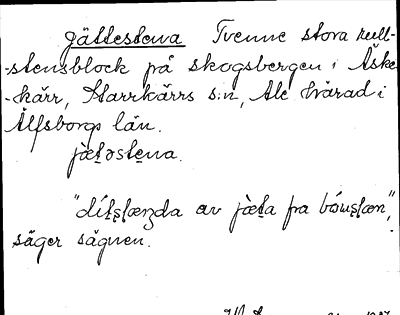 Jättestena Tvenne stora rull-
-stensblock på skogsbergen i Äske-
-kärr, Starrkärrs s:n, Ale härad i
Älfsborgs län.
jæt̲əste̲na.
"dít̲s̲læŋda av jæ̀t̲a fra bóws̲læn",
säger sägnen.